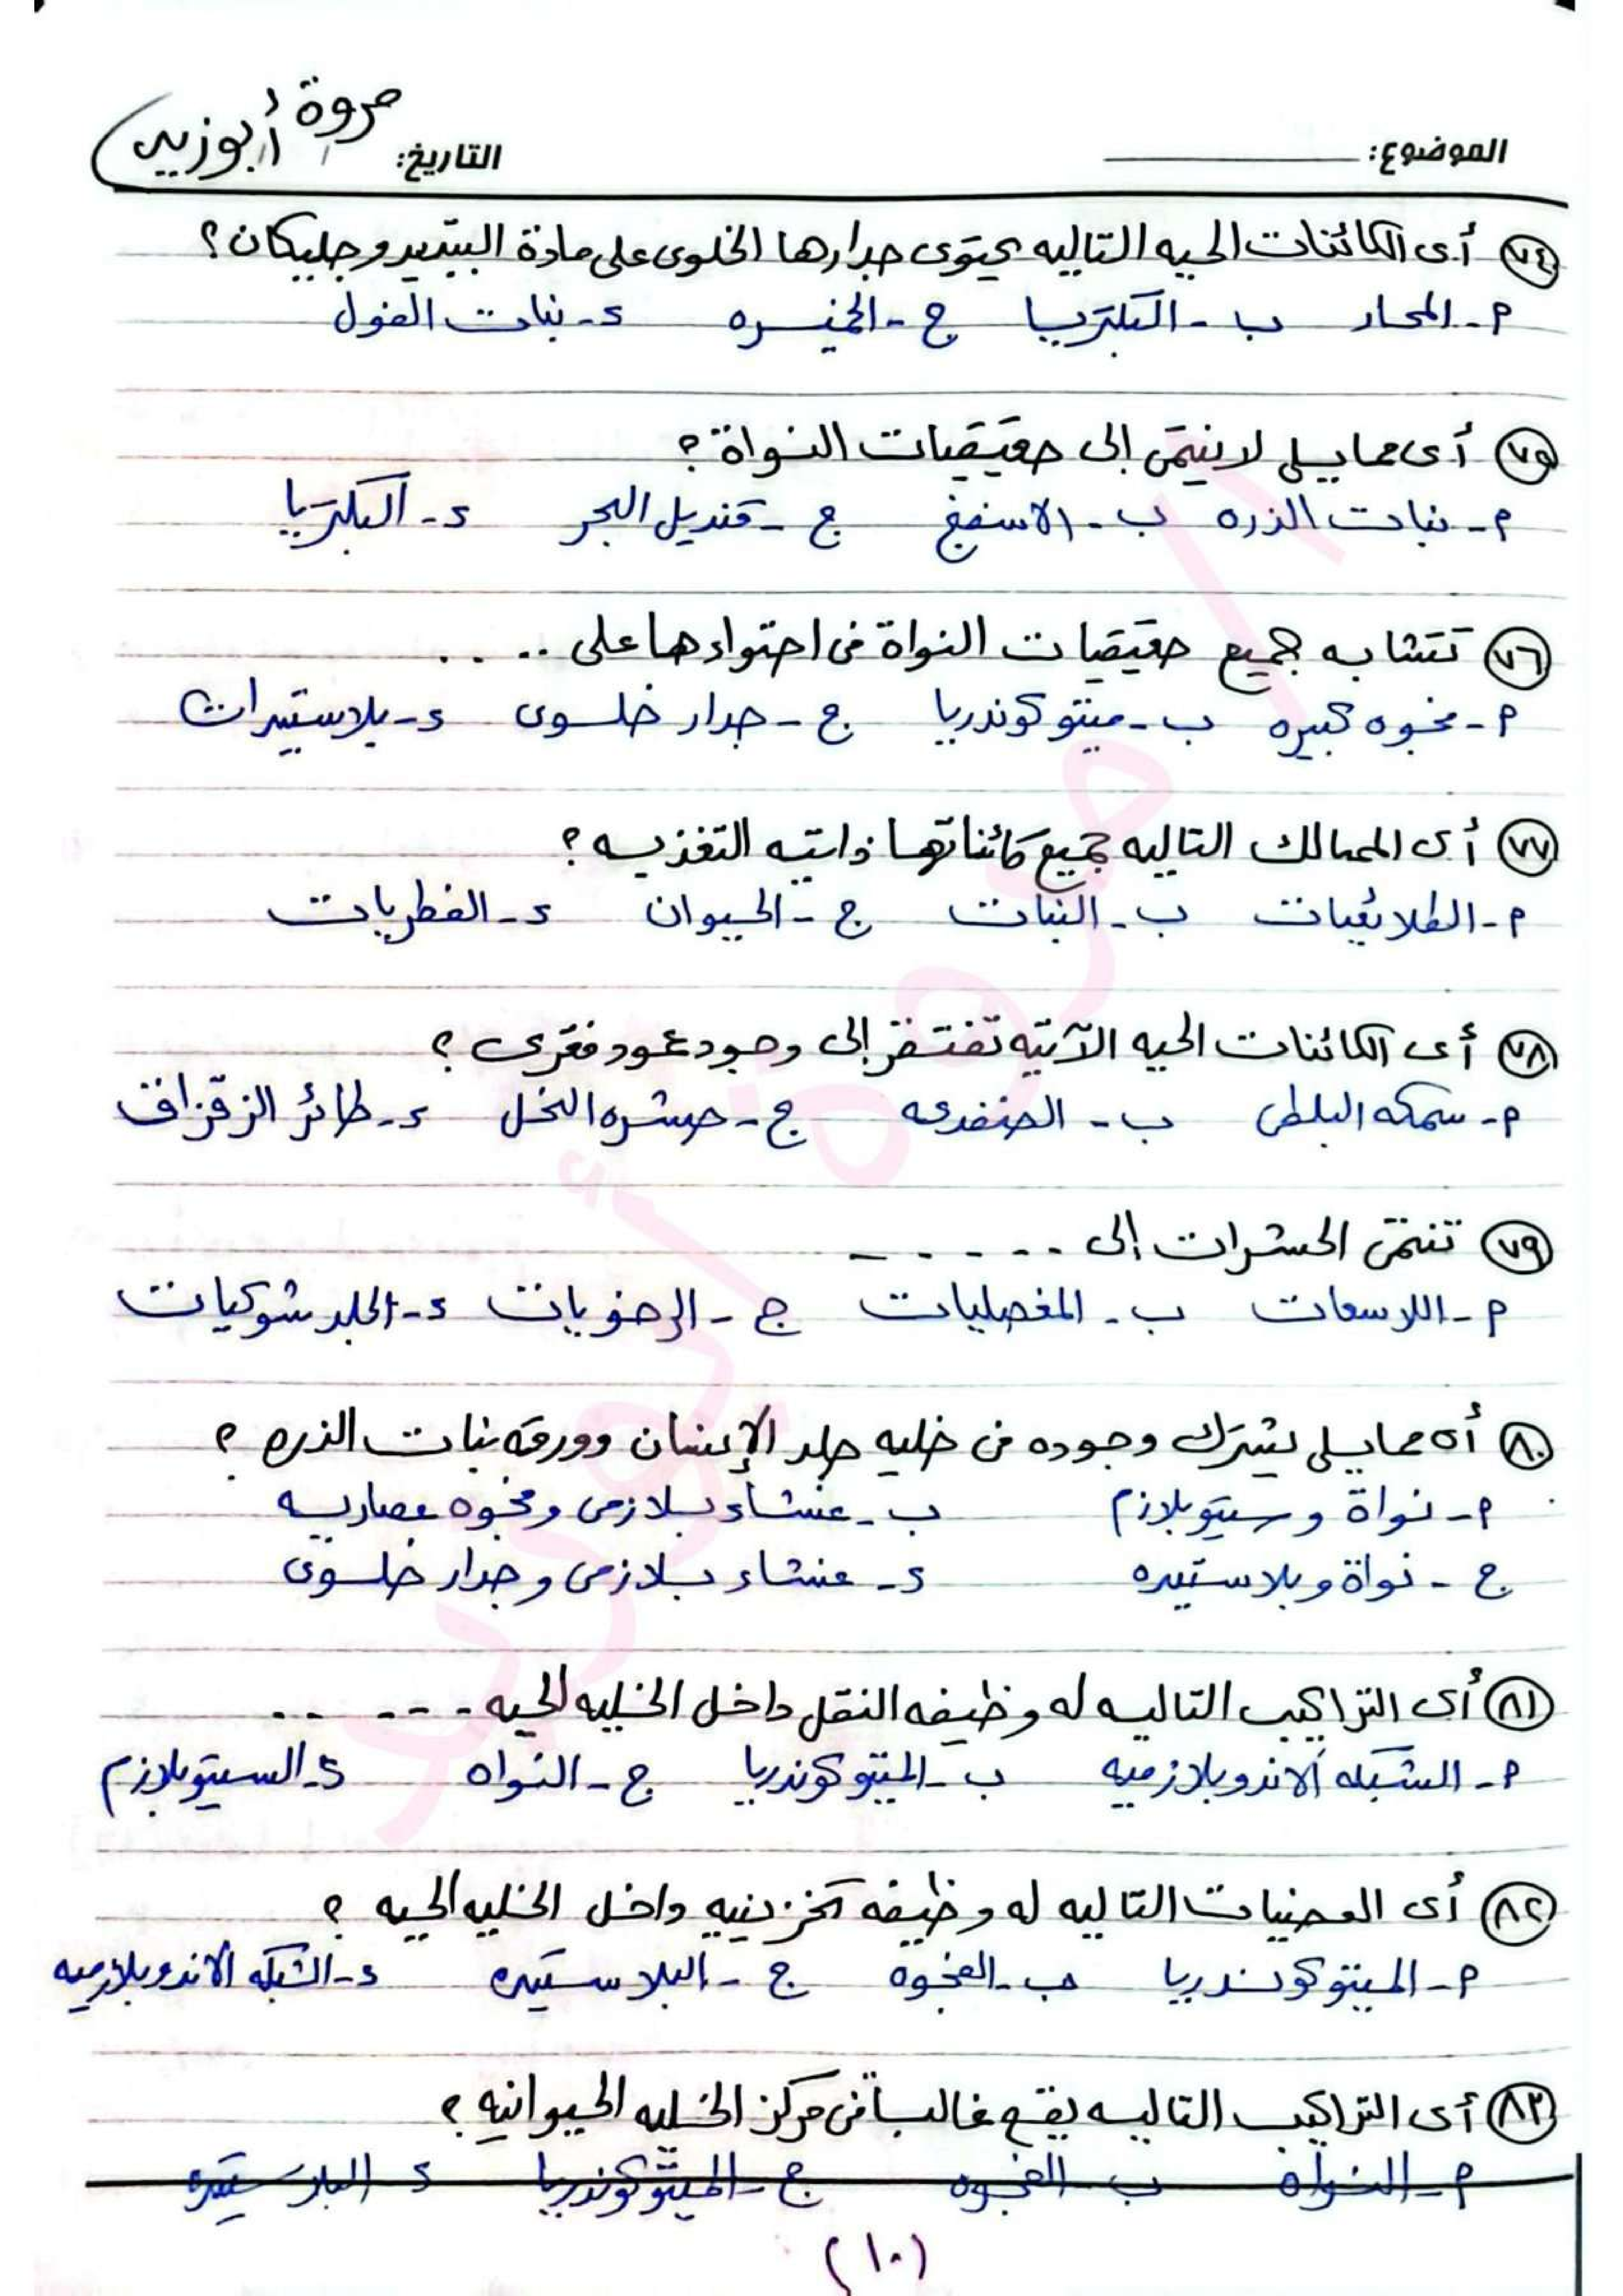 الموضوع: التاريخ: مروة أبوزيد
٧٤ أى الكائنات الحيه التاليه يحتوى جدارها الخلوى على مادة الببتيدوجليكان؟
أ - المحار ب - البكتريا ج - الخميره د - نبات الفول
٧٥ أى مما يلى لا ينتمى إلى حقيقيات النواة؟
أ - نبات الذره ب - الاسفنج ج - قنديل البحر د - البكتريا
٧٦ تتشابه جميع حقيقيات النواة فى احتواءها على ....
أ - فجوه كبيره ب - ميتوكوندريا ج - جدار خلوى د - بلاستيدات
٧٧ أى الممالك التاليه جميع كائناتها ذاتيه التغذيه؟
أ - الطلائعيات ب - النبات ج - الحيوان د - الفطريات
٧٨ أى الكائنات الحيه الآتيه تفتقر إلى وجود عمود فقرى؟
أ - سمكه البلطى ب - الضفدعه ج - حشره النحل د - طائر الزقزاق
٧٩ تنتمى الحشرات إلى -----
أ - اللاسعات ب - المفصليات ج - الرخويات د - الجلد شوكيات
٨٠ أى مما يلى يشترك وجوده فى خليه جلد الإنسان وورقه نبات الذره؟
أ - نواة وسيتوبلازم ب - غشاء بلازمى وفجوه عصاريه
ج - نواة وبلاستيده د - غشاء بلازمى وجدار خلوى
٨١ أى التراكيب التاليه له وظيفه النقل داخل الخليه الحيه -----
أ - الشبكه الاندوبلازميه ب - الميتوكوندريا ج - النواه د - السيتوبلازم
٨٢ أى العضيات التاليه له وظيفه تخزينيه داخل الخليه الحيه؟
أ - الميتوكوندريا ب - الفجوه ج - البلاستيده د - الشبكه الاندوبلازميه
٨٣ أى التراكيب التاليه يقع غالباً فى مركز الخليه الحيوانيه؟
أ - النواه ب - الفجوه ج - الميتوكوندريا د - البلاستيده
(١٠)
مروة أبوزيد